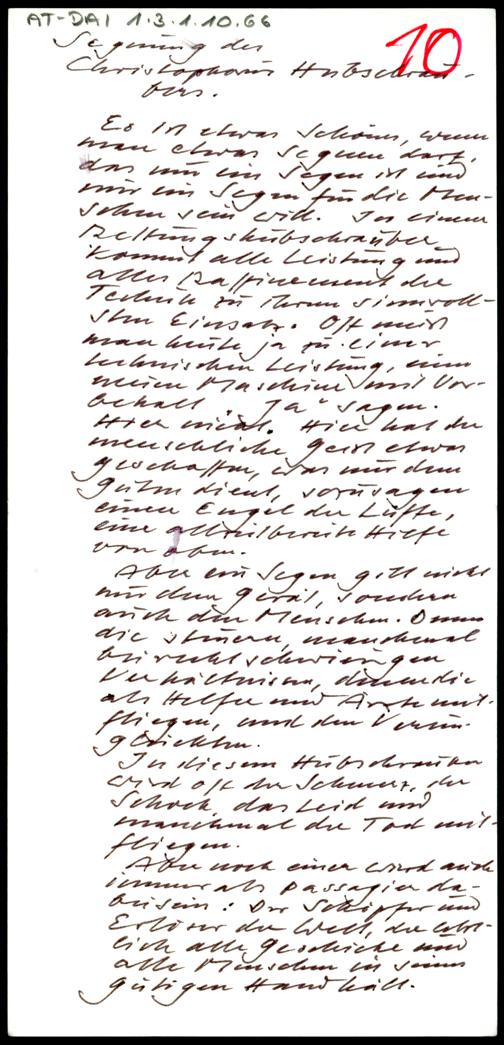 AT-DAI 1.3.1.10.66
10
Segnung des
Christophorus Hubschrau-
bers.
Es ist etwas Schönes, wenn
man etwas segnen darf,
das nur ein Segen ist und
nur ein Segen für die Men-
schen sein will. In einem
Rettungshubschrauber
kommt alle Leistung und
alles Raffinement der
Technik zu ihrem sinnvoll-
sten Einsatz. Oft muß
man heute ja zu einer
technischen Leistung, einer
neuen Maschine mit Vor-
behalt "Ja" sagen.
Hier nicht. Hier hat der
menschliche Geist etwas
geschaffen, was nur dem
Guten dient, sozusagen
einen Engel der Lüfte,
eine allzeitbereite Hilfe
von oben.
Aber ein Segen gilt nicht
nur dem Gerät, sondern
auch den Menschen. Denen
die steuern, manchmal
bei recht schwierigen
Verhältnissen, denen die
als Helfer und Ärzte mit-
fliegen, und den Verun-
glückten.
In diesem Hubschrauber
wird oft der Schmerz, der
Schock, das Leid und
manchmal der Tod mit-
fliegen.
Aber noch einer wird auch
immer als Passagier da-
bei sein: Der Schöpfer und
Erlöser der Welt, der
alle Geschicke und
alle Menschen in seiner
gütigen Hand hält.